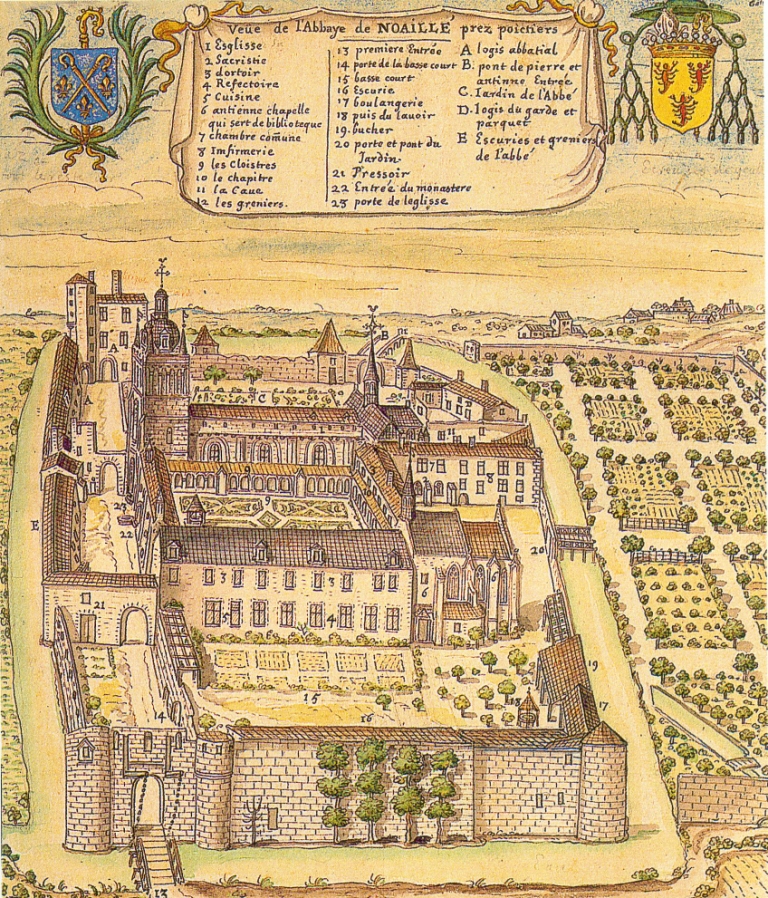 Veue de l'Abbaye de NOAILLÉ prez poictiers
1 Esglisse
2 Sacristie
3 dortoir
4 Refectoire
5 Cuisine
6 antienne chapelle
qui sert de biblioteque
7 chambre comune
8 Imfirmerie
9 les Cloistres
10 le chapitre
11 la Caue
12 les greniers.
13 premiere Entrée
14 porte de la basse court
15 basse court
16 Escurie
17 boulangerie
18 puis du lauoir
19. bucher
20 porte et pont du
Jardin.
21 Pressoir
22 Entrée du monastere
23 porte de leglisse
A logis abbatial
B. pont de pierre et
antinne Entrée
C. Iardin de l'Abbé
D. logis du garde et
parquet
E Escuries et greniers
de l'abbé
A
B
C
A
9
9
10
11
7
8
E
23
22
20
3
3
6
6
21
4
19
15
18
17
14
16
13